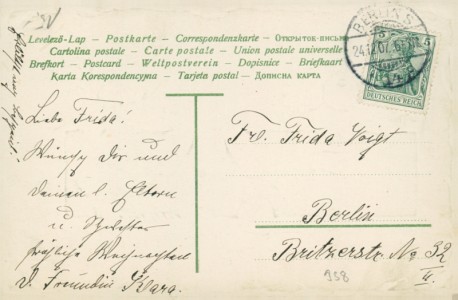 Levelező-Lap – Postkarte – Correspondenzkarte – Открытое письмо
Cartolina postale – Carte postale – Union postale universelle
Brefkort – Postcard – Weltpostverein – Dopisnice – Briefkaart
Karta Korespondencyjna – Tarjeta postal – Дописна карта
BERLIN S
24.12.07. 6
5 5
DEUTSCHES REICH
Liebe Frida!
Wünsche Dir und
Deinen l. Eltern
u.
fröhliche Weihnachten
D. Freundin Klara.
Frl. Frida Voigt
Berlin
Britzerstr. No 32
II.
958